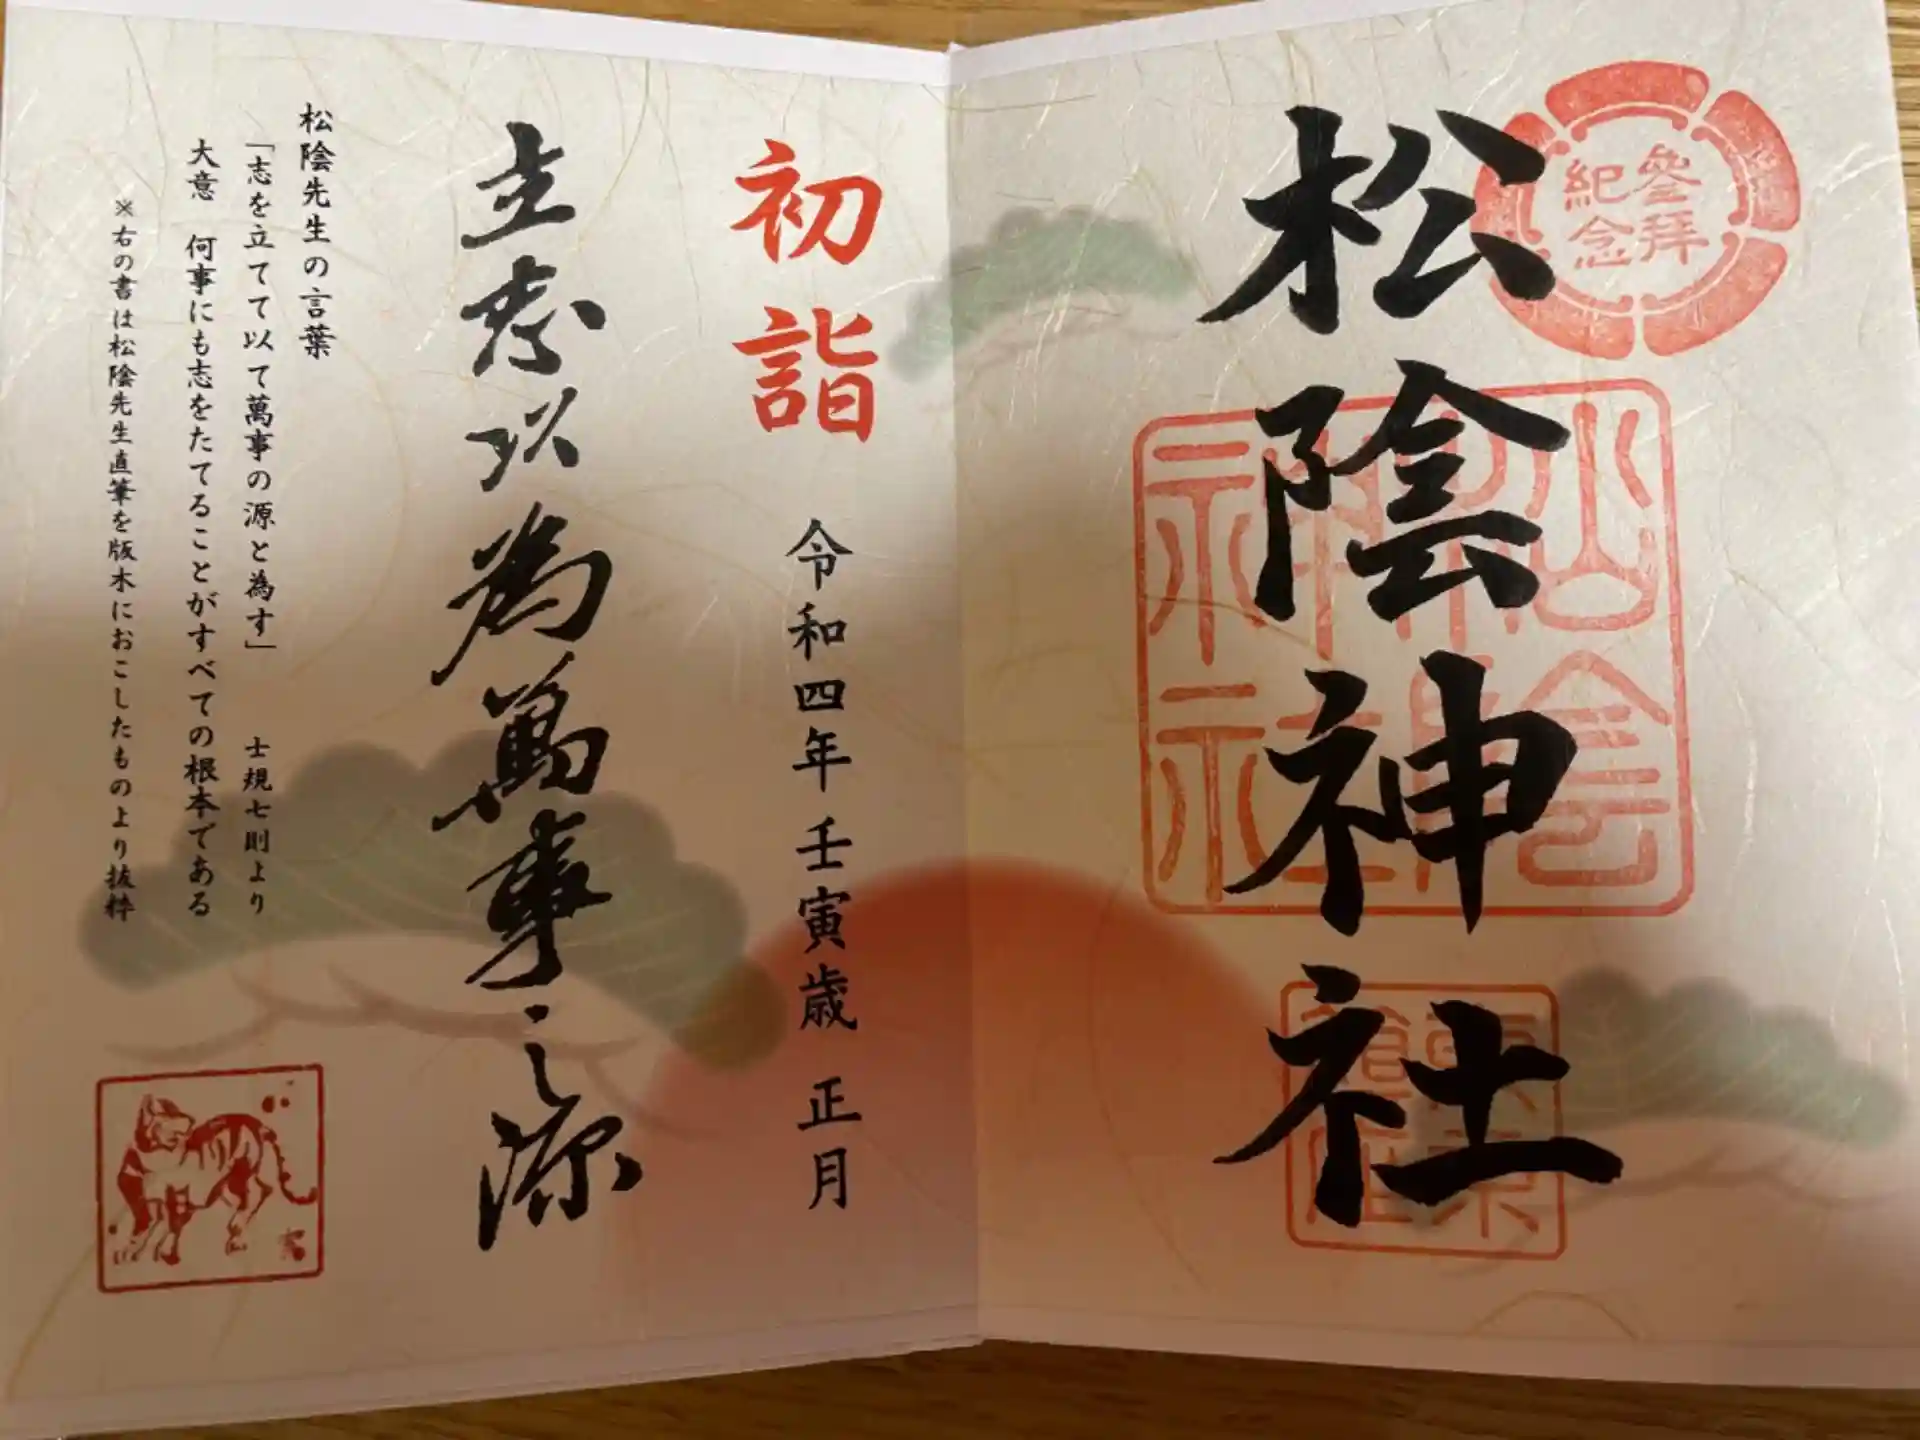 參拜
紀念
松陰神社
松陰
神社
東京
初詣
令和四年 壬寅歳 正月
立志以為萬事之源
松陰先生の言葉
「志を立てて以て萬事の源と為す」 士規七則より
大意 何事にも志をたてることがすべての根本である
※右の書は松陰先生直筆を版木におこしたものより抜粋